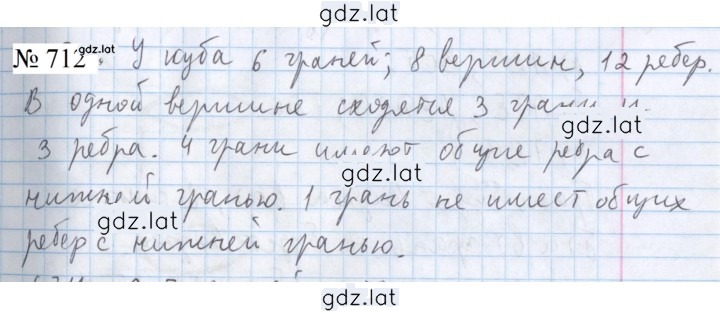 gdz.lat
№ 712. gdz.lat У куба 6 граней; 8 вершин, 12 ребер.
В одной вершине сходятся 3 грани и
gdz.lat
3 ребра. 4 грани имеют общие ребра с
gdz.lat
нижней гранью. 1 грань не имеет общих
gdz.lat
ребер с нижней гранью.
gdz.lat